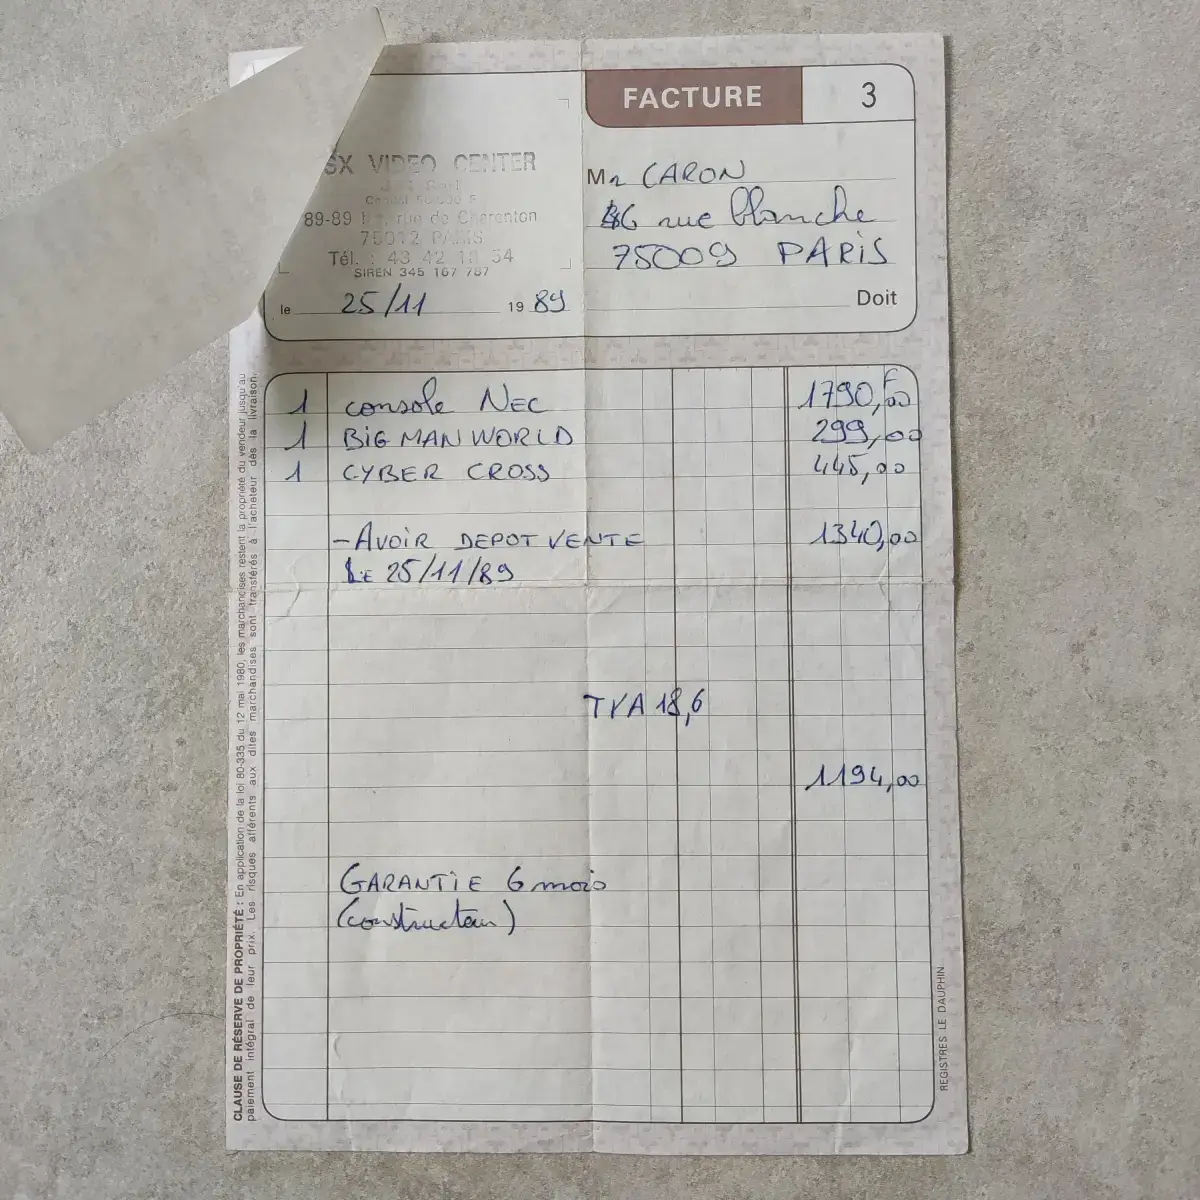 FACTURE 3
SX VIDEO CENTER
89-89 rue de Charenton
75012 PARIS
Tél. : 43 42 18 54
SIREN 345 167 787
le 25/11 1989
Mr CARON
46 rue blanche
75009 PARIS
Doit
1 console NEC 1790,00 F
1 BIG MAN WORLD 299,00
1 CYBER CROSS 445,00
- AVOIR DEPOT VENTE 1340,00
LE 25/11/89
TVA 18,6
1194,00
GARANTIE 6 mois
(constructeur)
CLAUSE DE RÉSERVE DE PROPRIÉTÉ : En application de la loi 80-335 du 12 mai 1980, les marchandises restent la propriété du vendeur jusqu'au
paiement intégral de leur prix. Les risques afférents aux dites marchandises sont transférés à l'acheteur dès la livraison.
REGISTRES LE DAUPHIN